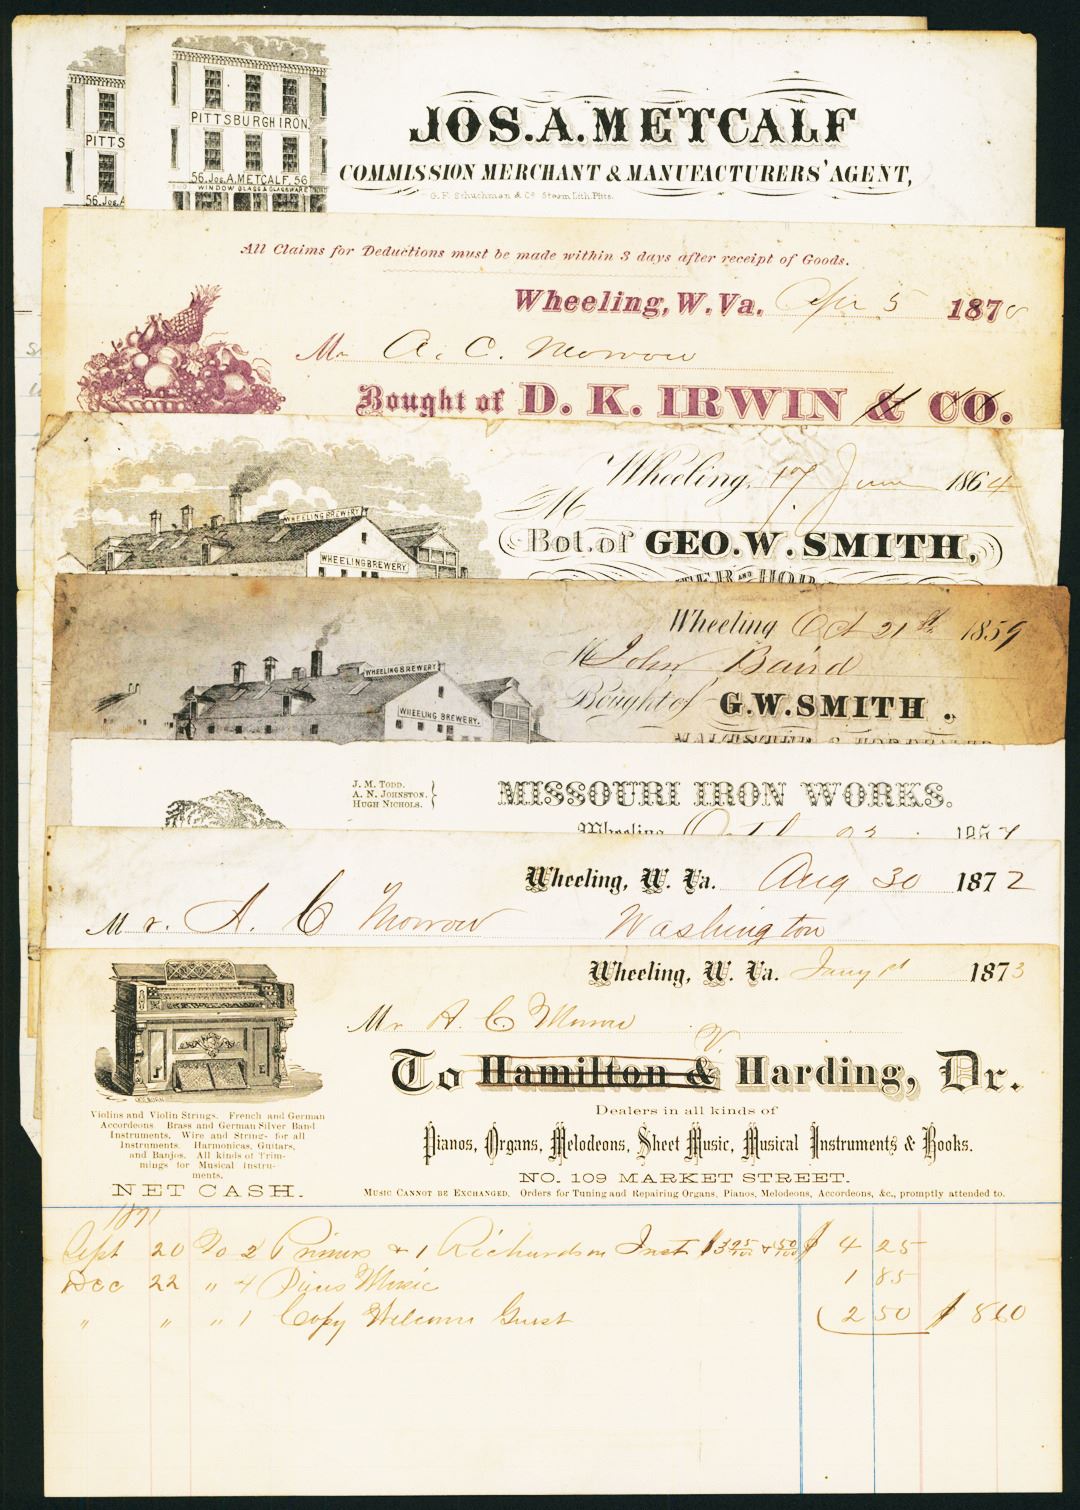 PITTSBURGH IRON
PITTS
JOS. A. METCALF
COMMISSION MERCHANT & MANUFACTURERS' AGENT,
56. Jos. A. METCALF. 56
WINDOW GLASS & GLASSWARE
56. Jos. A
G. F. Schuchman & Co. Steam Lith. Pitts.
All Claims for Deductions must be made within 3 days after receipt of Goods.
Wheeling, W. Va. Apr 5 187
Mr A. C. Morrow
Bought of D. K. IRWIN & CO.
Wheeling, 17 June 1864
M
WHEELING BREWERY
Bot. of GEO. W. SMITH,
WHEELING BREWERY
Wheeling Oct 21st 1859
M John Baird
WHEELING BREWERY
Bought of G. W. SMITH.
WHEELING BREWERY.
J. M. TODD.
A. N. JOHNSTON.
HUGH NICHOLS.
MISSOURI IRON WORKS.
Wheeling
Wheeling, W. Va. Aug 30 1872
Mr. A. C Morrow Washington
Wheeling, W. Va. Jany 1st 1873
Mr A. C Morrow
To Hamilton & Harding, Dr.
Dealers in all kinds of
Pianos, Organs, Melodeons, Sheet Music, Musical Instruments & Books.
NO. 109 MARKET STREET.
MUSIC CANNOT BE EXCHANGED. Orders for Tuning and Repairing Organs, Pianos, Melodeons, Accordeons, &c., promptly attended to.
Violins and Violin Strings. French and German
Accordeons. Brass and German Silver Band
Instruments. Wire and Strings for all
Instruments. Harmonicas, Guitars,
and Banjos. All kinds of Trim-
mings for Musical Instru-
ments.
NET CASH.
1871
Sept 20 To 2 Primers & 1 Richardson Inst $ 4 25
Dec 22 " 4 Pieces Music 1 85
" " " 1 Copy Welcome Guest 2 50 $ 8 60